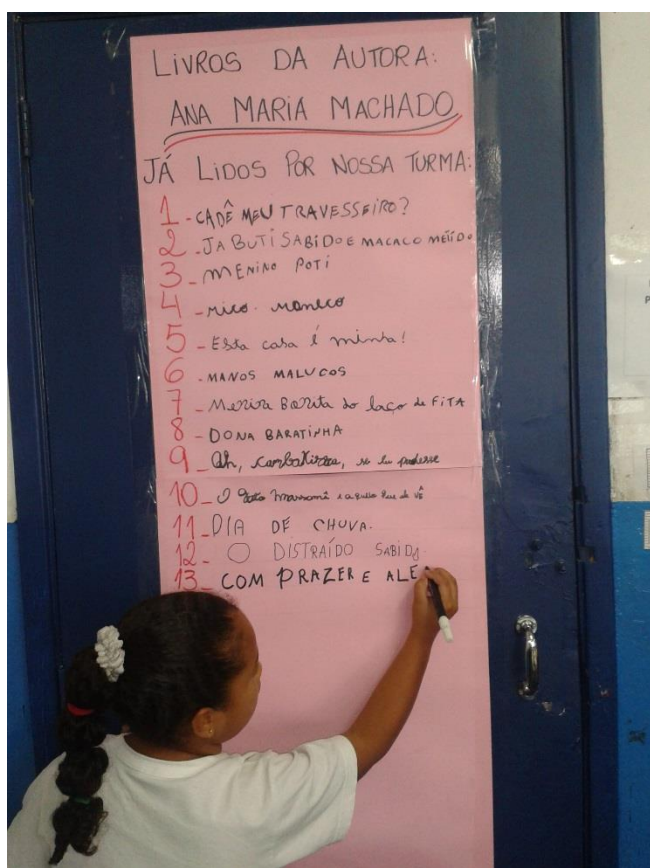 LIVROS DA AUTORA:
ANA MARIA MACHADO
JÁ LIDOS POR NOSSA TURMA:
1 - CADÊ MEU TRAVESSEIRO?
2 - JABUTI SABIDO E MACACO METIDO
3 - MENINO POTI
4 - mico maneco
5 - Esta casa é minha!
6 - MANOS MALUCOS
7 - Menina Bonita do laço de FITA
8 - DONA BARATINHA
9 - Ah, Cambaxirra, se eu pudesse
10 - O gato Massamê e aquilo que ele VÊ
11 - DIA DE CHUVA.
12 - O DISTRAÍDO SABIDO
13 - COM PRAZER E ALE